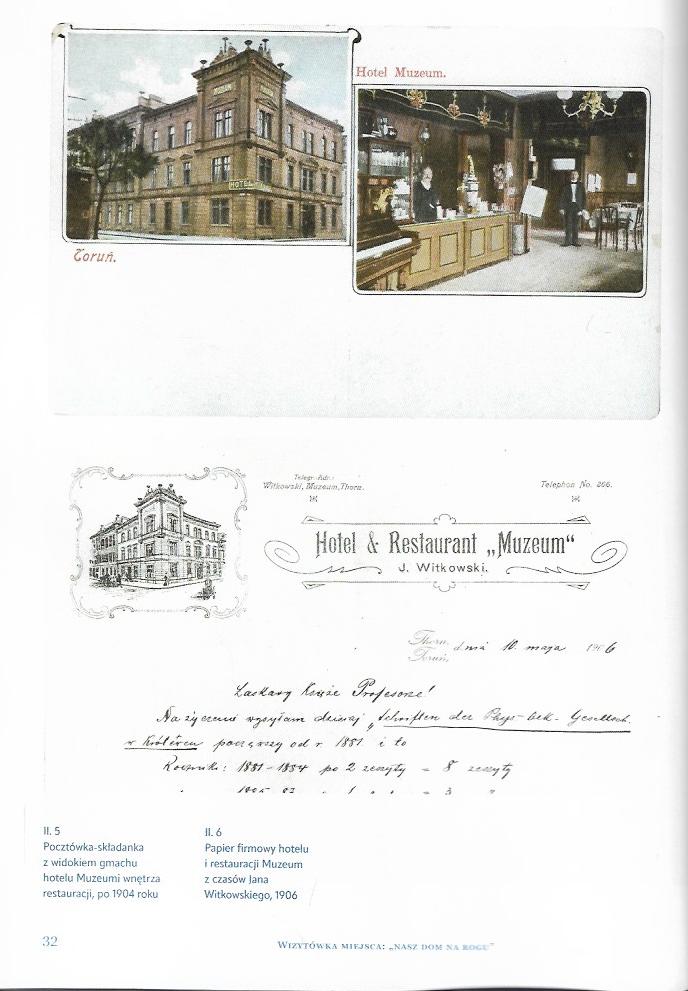 MUZEUM
HOTEL
Hotel Muzeum.
Toruń.
Telegr.-Adr.:
Witkowski, Muzeum, Thorn.
Telephon No. 266.
Hotel & Restaurant „Muzeum“
J. Witkowski.
Thorn,
Toruń,
dnia 10. maja 1906
Łaskawy Księże Profesorze!
Na życzenie wysyłam dzisiaj „Schriften der Phys-oek. Gesellsch.
w Królewcu począwszy od r 1881 i to
Roczniki: 1881-1884 po 2 zeszyty = 8 zeszyty
Il. 5
Pocztówka-składanka
z widokiem gmachu
hotelu Muzeumi wnętrza
restauracji, po 1904 roku
Il. 6
Papier firmowy hotelu
i restauracji Muzeum
z czasów Jana
Witkowskiego, 1906
32
Wizytówka miejsca: „Nasz dom na rogu”